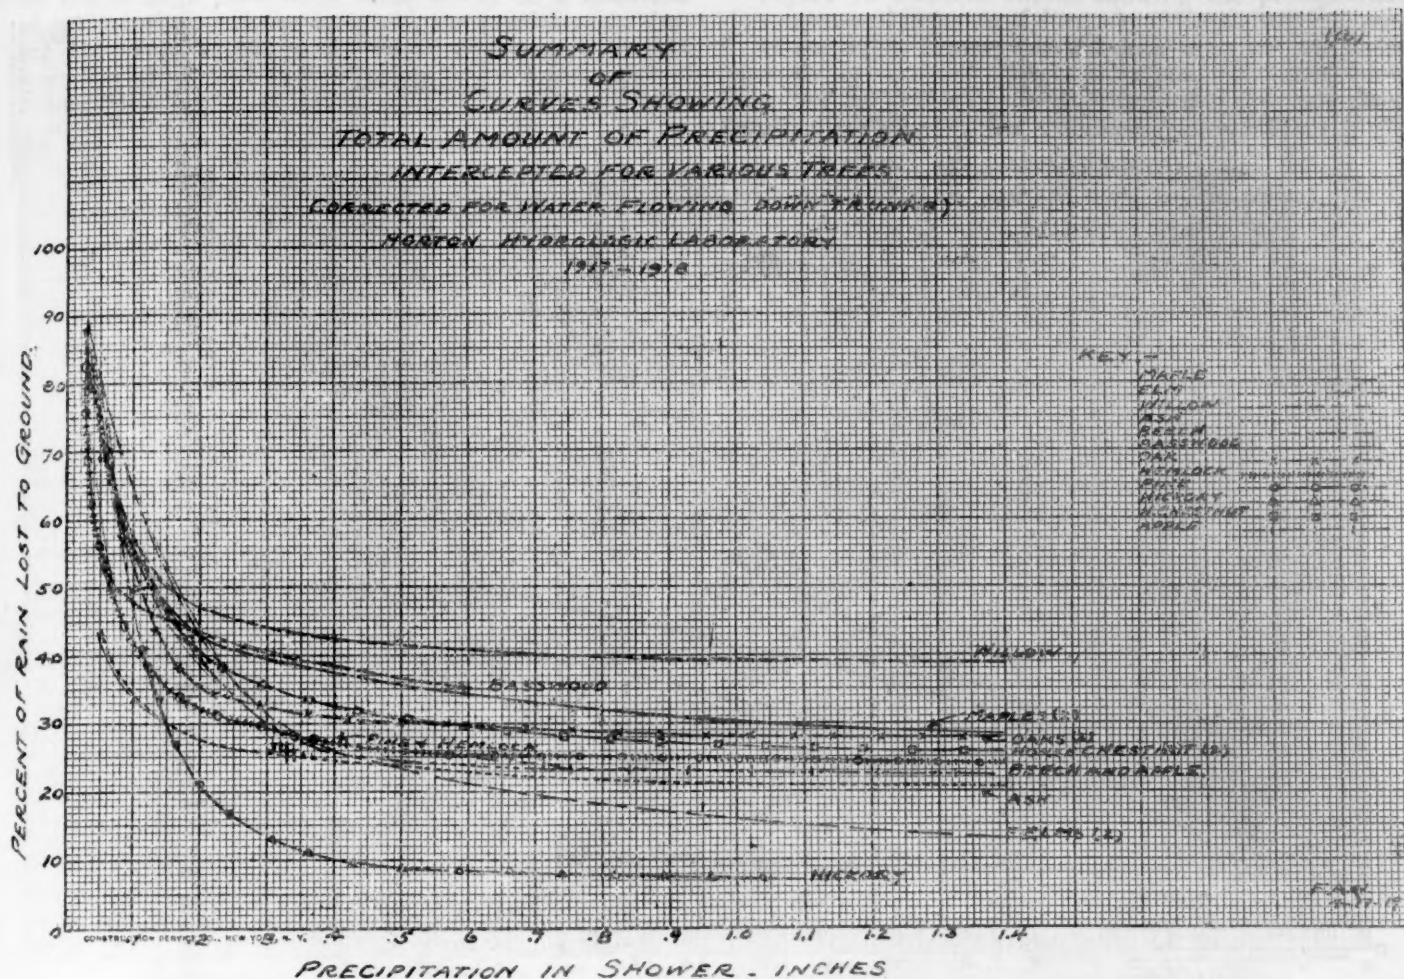 SUMMARY
OF
CURVES SHOWING
TOTAL AMOUNT OF PRECIPITATION
INTERCEPTED FOR VARIOUS TREES
CORRECTED FOR WATER FLOWING DOWN TRUNKS)
HORTON HYDROLOGIC LABORATORY
1917-1918
PERCENT OF RAIN LOST TO GROUND.
100
90
80
70
60
50
40
30
20
10
0
KEY.-
MAPLE
ELM
WILLOW
ASH
BEECH
BASSWOOD
OAK
HEMLOCK
PINE
HICKORY
H.CHESTNUT
APPLE
WILLOW
BASSWOOD
MAPLES (2)
OAKS (2)
HORSE CHESTNUT (2)
PINE & HEMLOCK
BEECH AND APPLE.
ASH
ELMS (2)
HICKORY
CONSTRUCTION SERVICE CO., NEW YORK, N. Y.
.2 .3 .4 .5 .6 .7 .8 .9 1.0 1.1 1.2 1.3 1.4
PRECIPITATION IN SHOWER - INCHES